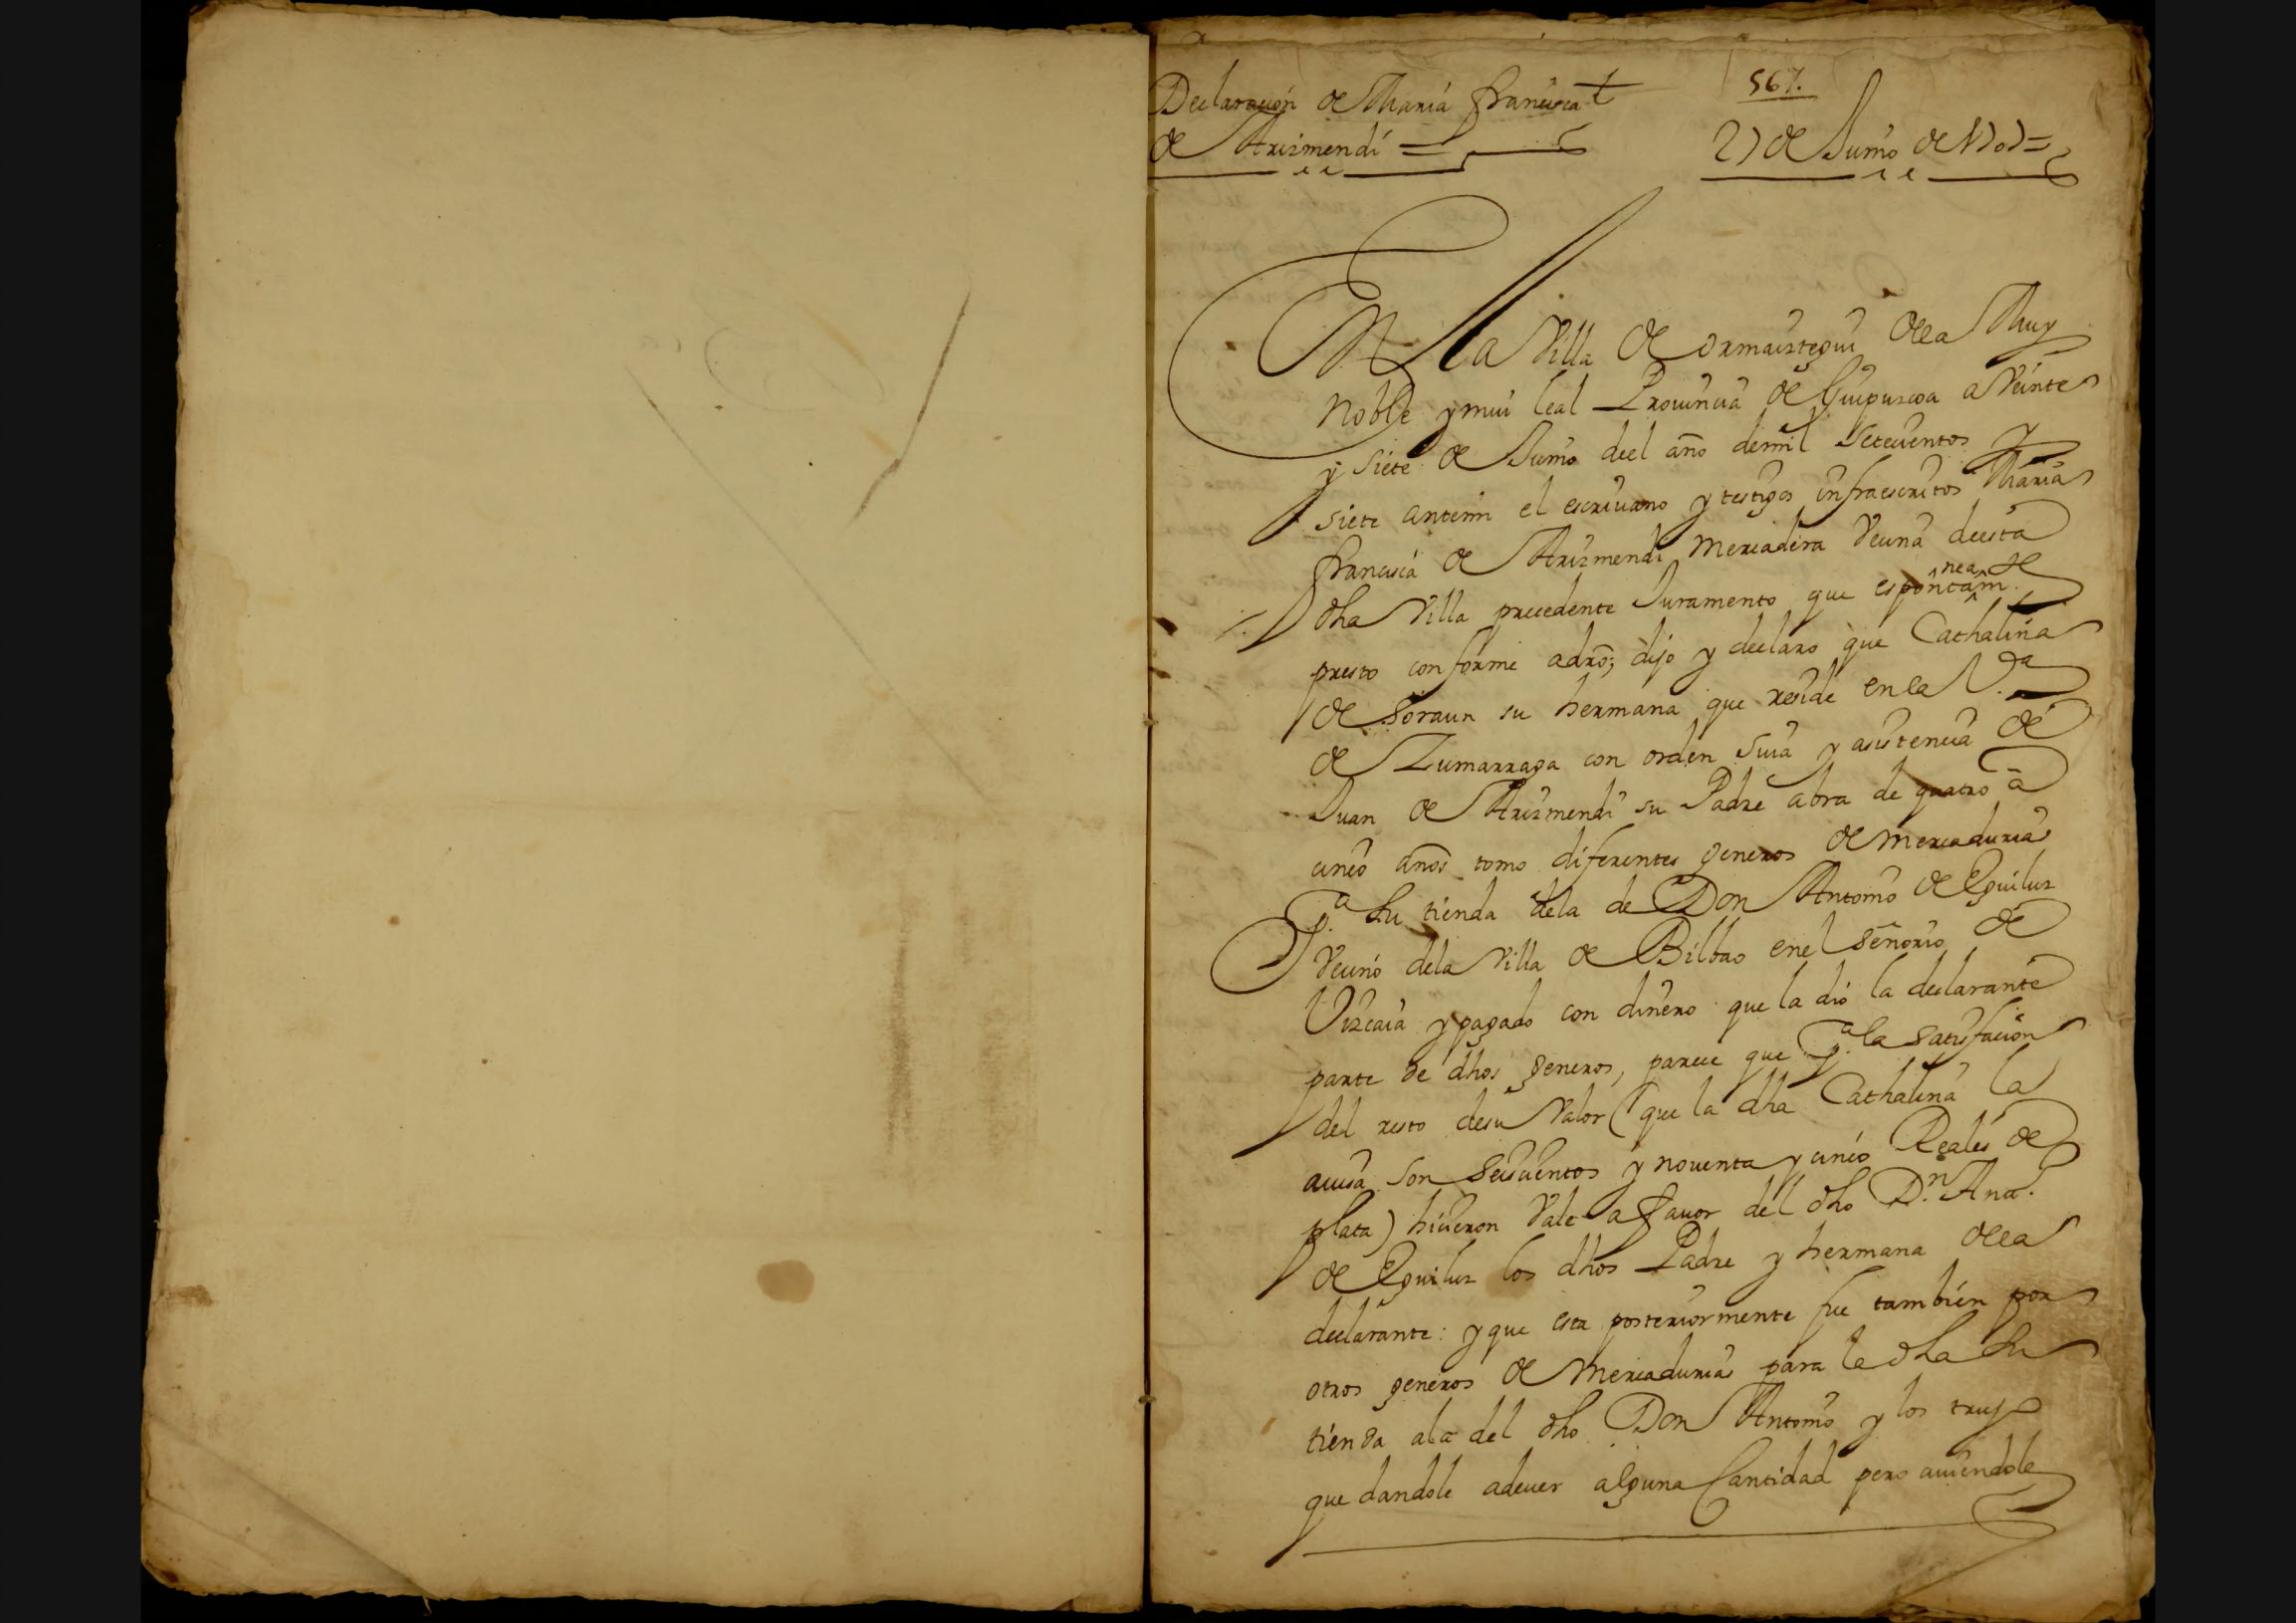 567.
Declaraçión de María françisca
de Arizmendi =
27 de Junio de 1707=
EN la Villa de ormaiztegui dela Muy
Noble y mui leal Prouinçia de Guipuzcoa a Veinte
y siete de Junio deel año demil seteçientos y
siete antemi el escriuano y testigos infraescritos María
françisca de Arizmendi Mercadera Veçina deesta
dha Villa precedente Juramento que espontaneam.te
presto conforme adro; dijo y declaro que Cathalina
de Soraun su hermana que reside en la V.a
de Zumarraga con orden suia y asistençia de
Juan de Arizmendi su Padre abra de quatro a
çinco años tomo diferentes generos de Mercadurias
p.a su tienda dela de Don Antonio de Eguiluz
Veçino dela Villa de Bilbao enel señorio de
Vizcaia y pagado con dinero que la dió la declarante
parte de dhos generos, pareçe que p.a la satisfaçion
del resto desu Valor (que la dha Cathalina la
auisa son seisçientos y nouenta y çinco Reales de
plata) hiçieron Vale a fauor del dho D.n Ant.o
de Eguiluz los dhos Padre y hermana dela
declarante: y que esta posteriormente fue tambien por
otros generos de Mercadurias para la dha su
tienda ala del dho Don Antonio y los trujo
que dandole adeuer alguna Cantidad pero auiendole